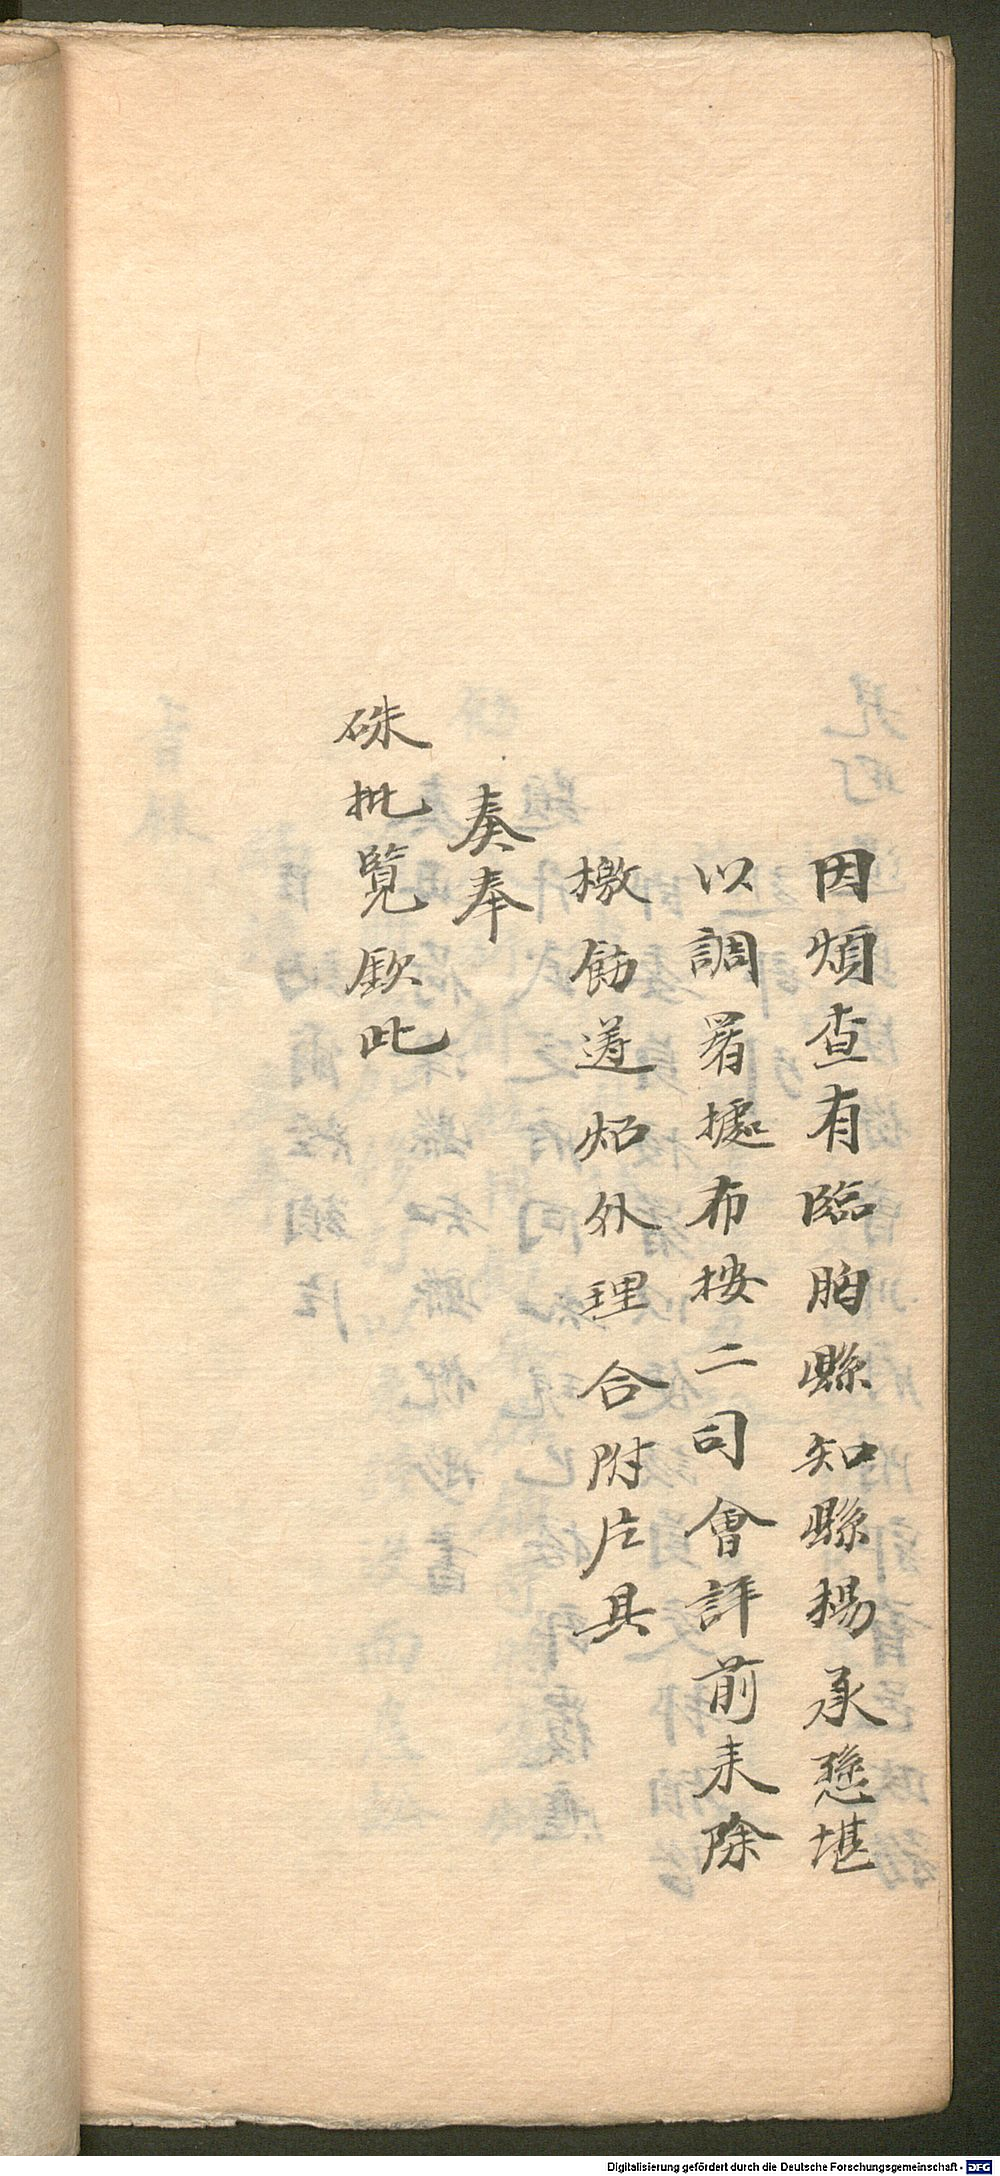 因煩查有臨朐縣知縣楊承懋堪
以調署據布按二司會評前来除
檄飭遵炤外理合附片具
奏奉
硃批覽欽此
Digitalisierung gefördert durch die Deutsche Forschungsgemeinschaft - DFG